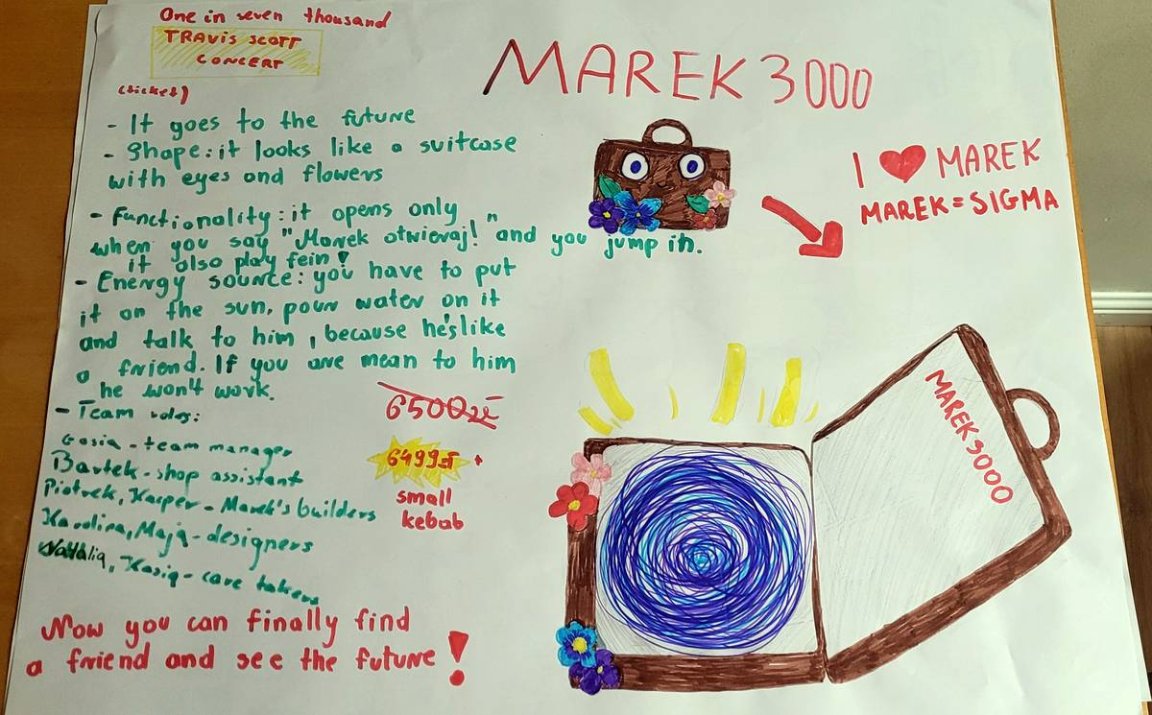 One in seven thousand
TRAVIS SCOTT
CONCERT
(ticket)
MAREK 3000
- It goes to the future
- Shape: it looks like a suitcase
with eyes and flowers
- Functionality: it opens only
when you say "Marek otwieraj!" and you jump in.
it also play fein!
- Energy source: you have to put
it on the sun, pour water on it
and talk to him, because he's like
a friend. If you are mean to him
he won't work.
- Team roles:
Gosia - team manager
Bartek - shop assistant
Piotrek, Kacper - Marek's builders
Karolina, Maja - designers
Natalia, Kasia - care takers
6500zł
6499zł +
small
kebab
Now you can finally find
a friend and see the future!
I ♥ MAREK
MAREK = SIGMA
MAREK3000